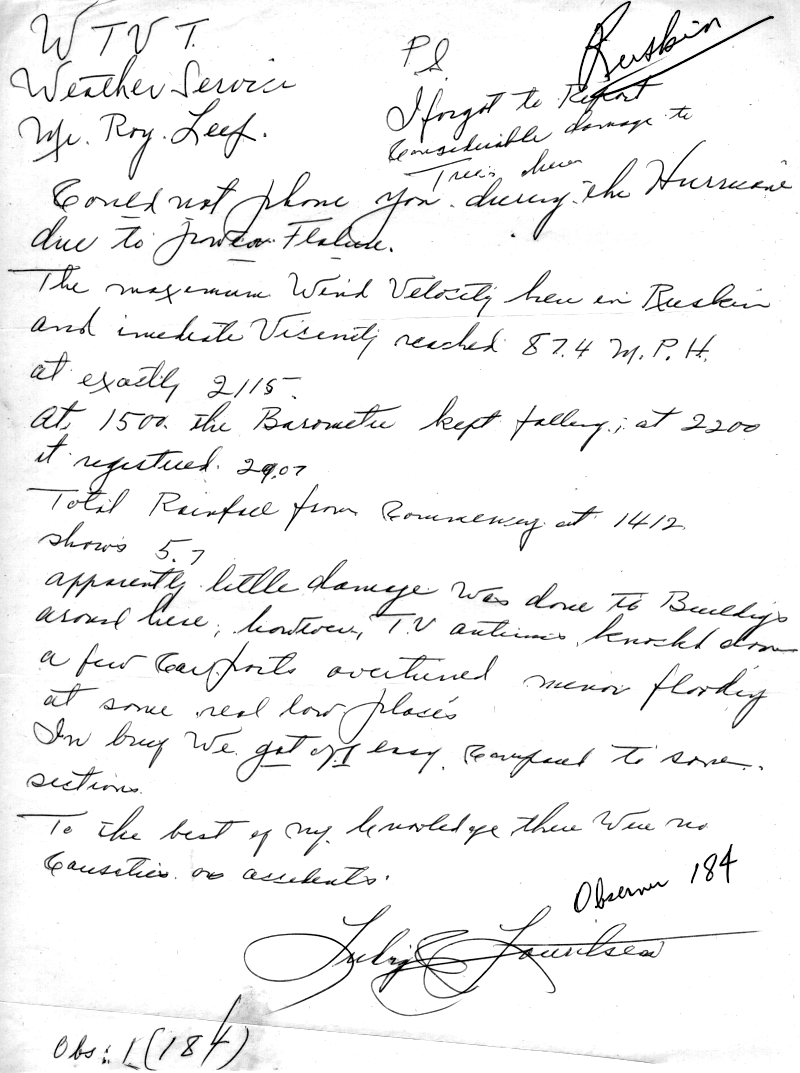 WTVT.
Weather Service
Mr. Roy Leep.
Ruskin
P S.
I forgot to Report
Considerable damage to
Trees here
Could not phone you during the Hurricane
due to power Failure.
The maximum Wind Velocity here in Ruskin
and imediate Vicenity reached 87.4 M.P.H.
at exactly 2115.
At 1500 the Barometer kept falling; at 2200
it registered 29.07
Total Rainfall from Commencing at 1412
shows 5.7
apparently little damage was done to Buildigs
around here; however, T.V antenas knockd down
a few Carports overturned minor floodig
at some real low places
In buy We got off easy. Compared to some
sections.
To the best of my knowledge there Were no
or accidents.
Observer 184
Lauritsen
Obs: 1 (184)